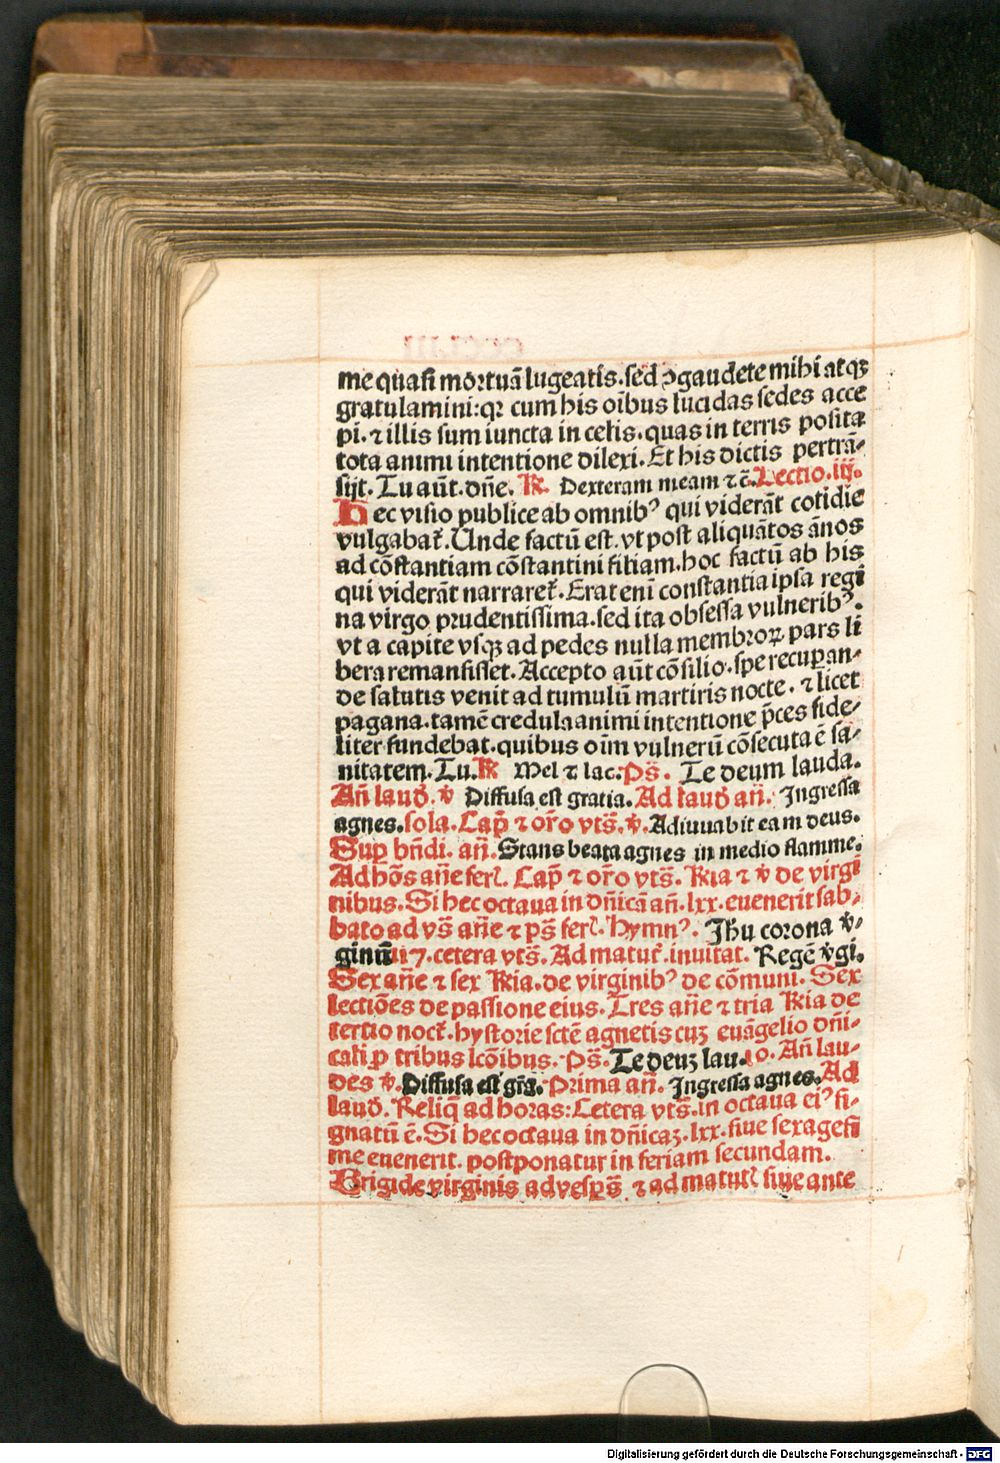 me quasi mortuā lugeatis.sed ꝯgaudete mihi atqꝫ
gratulamini:qꝛ cum his oībus lucidas sedes acce
pi.⁊ illis sum iuncta in celis.quas in terris posita
tota animi intentione dilexi.Et his dictis pertrā-
sijt.Tu aūt.dn̄e.℟. Dexteram meam ⁊ c̄.Lectio.iij.
Hec visio publice ab omnibꝰ qui viderāt cotidie
vulgabat᷑.Unde factū est.vt post aliquātos ānos
ad cōstantiam cōstantini filiam.hoc factū ab his
qui viderāt narraret᷑.Erat eni᷑ constantia ipsa regi
na virgo prudentissima.sed ita obsessa vulneribꝰ.
vt a capite vsqꝫ ad pedes nulla membroꝝ pars li
bera remansisset.Accepto aūt cōsilio.spe recuꝑan-
de salutis venit ad tumulū martiris nocte.⁊ licet
pagana.tamē credula animi intentione p̄ces fide-
liter fundebat.quibus oīm vulnerū cōsecuta ē sa-
nitatem.Tu.℟ Mel ⁊ lac:Ps̄. Te deum lauda.
Añ laud̄.℣ Diffusa est gratia.Ad laud̄ añ. Ingressa
agnes.sola.Cap̄ ⁊ or̄o vts̄.℣.Adiuuabit eam deus.
Suꝑ bn̄di. añ.Stans beata agnes in medio flamme.
Ad hōs añe ferl̄. Cap̄ ⁊ or̄o vts̄. ℟ia ⁊ ℣ de virgi
nibus.Si hec octaua in dn̄icā añ.lxx.euenerit sab-
bato ad vs̄ añe ⁊ ps̄ ferl̄.Hymnꝰ. Jhu corona v̓-
ginū ⁊ cetera vts̄.Ad matut᷑.inuitat. Regē v̓gi.
Sex añe ⁊ sex ℟ia.de virginibꝰ de cōmuni. Sex
lectiōes de passione eius.Tres añe ⁊ tria ℟ia de
tertio noct᷑.hystorie sctē agnetis cuꝫ euāgelio dn̄i-
cali ꝑ tribus lcōibus. Ps̄. Te deuꝫ lau. Añ lau-
des ℣.Diffusa est gr̄a.Prima añ. Ingressa agnes.Ad
laud̄. Reliq̄ ad horas:Cetera vts̄.in octaua eiꝰ si-
gnatū ē.Si hec octaua in dn̄icaꝫ.lxx.siue sexagesi
me euenerit. postponatur in feriam secundam.
Brigide virginis ad vesꝑs̄ ⁊ ad matut᷑ siue ante
Digitalisierung gefördert durch die Deutsche Forschungsgemeinschaft - DFG